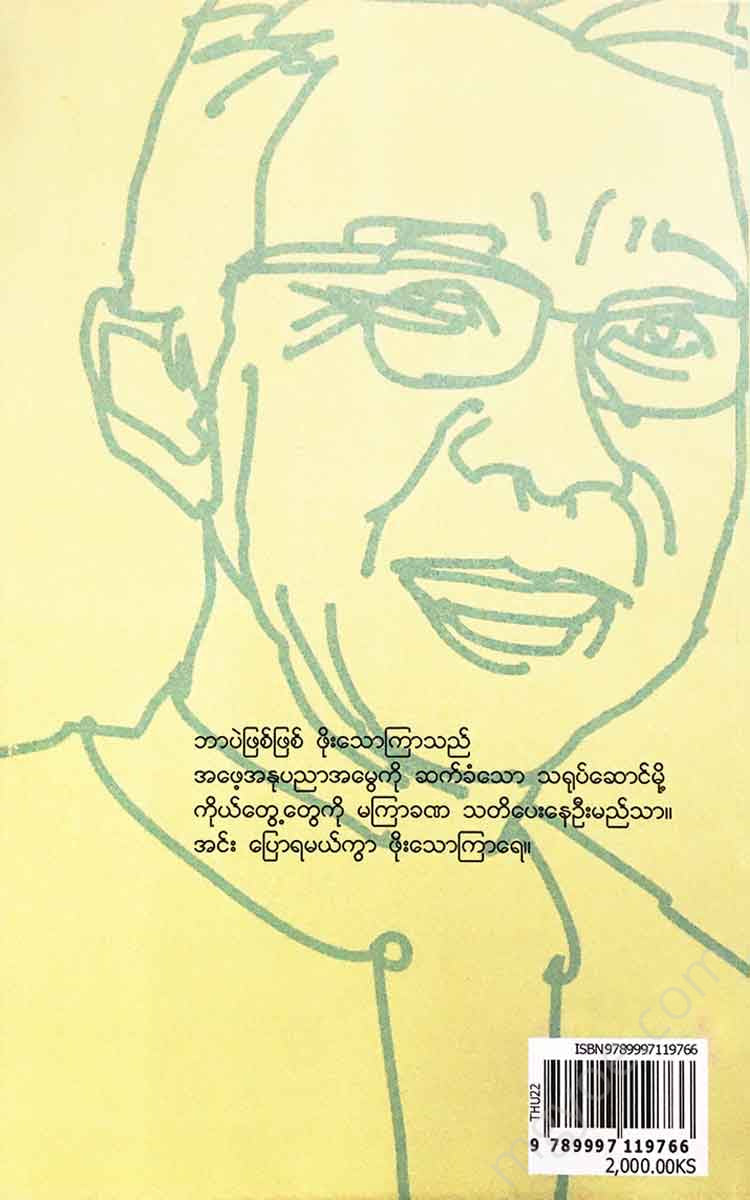 ဘာပဲဖြစ်ဖြစ် ဖိုးသောကြာသည်
အဖေ့အနုပညာအမွေကို ဆက်ခံသော သရုပ်ဆောင်မို့
ကိုယ်တွေ့တွေကို မကြာခဏ သတိပေးနေဦးမည်သာ။
အင်း ပြောရမယ်ကွာ ဖိုးသောကြာရေ။
ISBN9789997119766
THU22
9 789997 119766
2,000.00KS